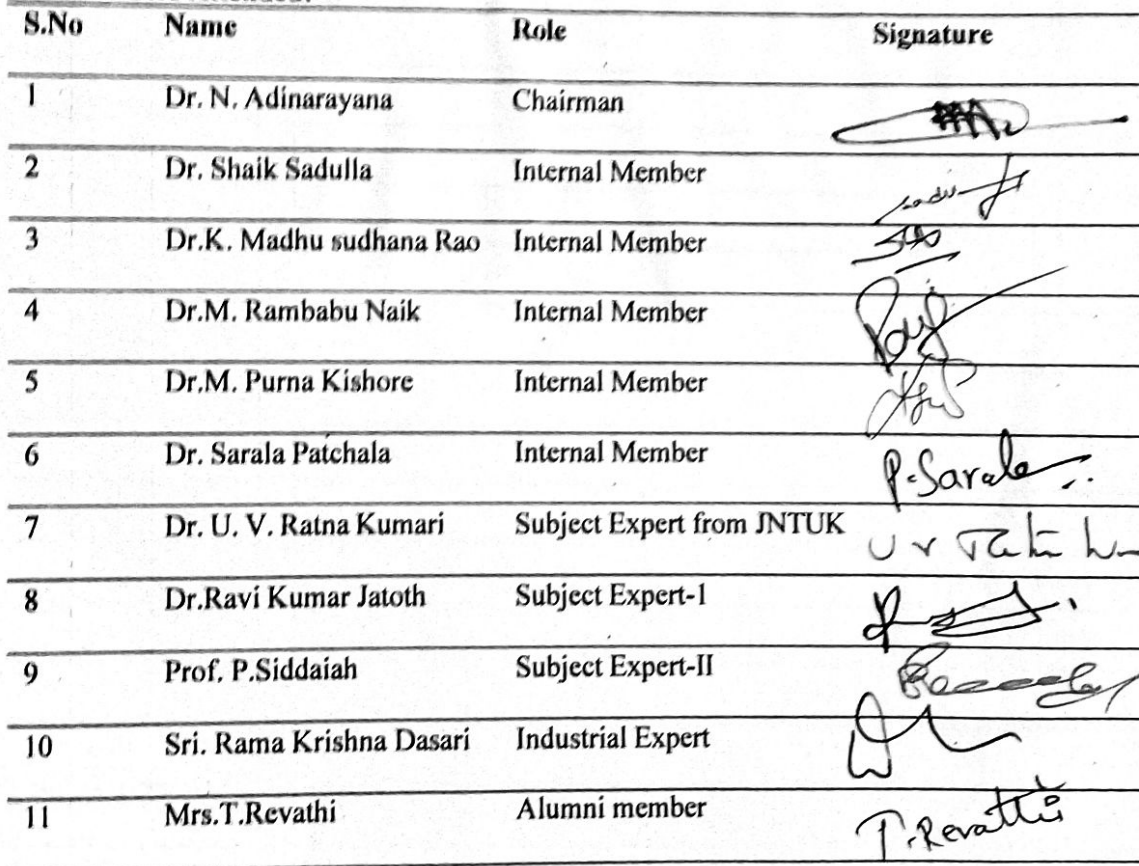 S.No Name Role Signature
1 Dr. N. Adinarayana Chairman
2 Dr. Shaik Sadulla Internal Member
3 Dr.K. Madhu sudhana Rao Internal Member
4 Dr.M. Rambabu Naik Internal Member
5 Dr.M. Purna Kishore Internal Member
6 Dr. Sarala Patchala Internal Member P.Sarala
7 Dr. U. V. Ratna Kumari Subject Expert from JNTUK U V
8 Dr.Ravi Kumar Jatoth Subject Expert-1
9 Prof. P.Siddaiah Subject Expert-II
10 Sri. Rama Krishna Dasari Industrial Expert
11 Mrs.T.Revathi Alumni member T.Revathi